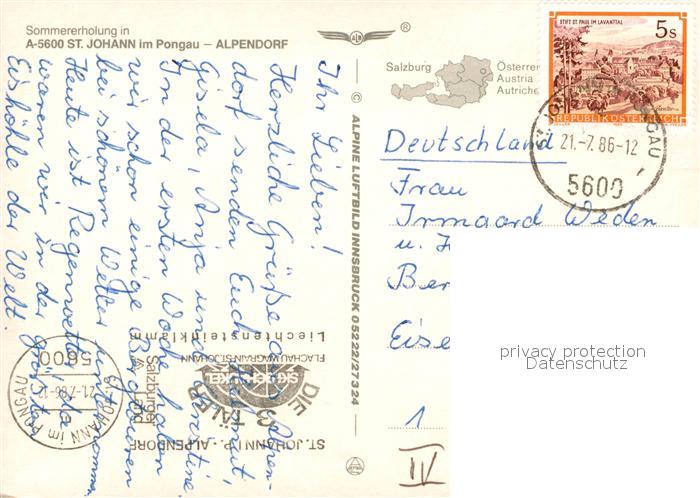 Sommererholung in
A-5600 ST. JOHANN im Pongau – ALPENDORF
®
Salzburg
Österrei
Austria
Autriche
STIFT ST. PAUL IM LAVANTTAL
5s
REPUBLIK ÖSTERREICH
21.-7.86-12
5600
Ihr Lieben!
Herzliche Grüße aus Alpen-
dorf senden Euch Helmut,
Gisela, Anja und Kristine.
In der ersten Woche haben
wir schon einige Bergtouren
bei schönem Wetter unternommen.
Heute ist Regenwetter, da
waren wir in der größten
Eishöhle der Welt.
© ALPINE LUFTBILD INNSBRUCK 05222/27324
Deutschland
Frau
Irmgard Weden
u.
Ber
Eise
1
IV
privacy protection
Datenschutz
ST. JOHANN I. P. - ALPENDORF
DIE 3 TÄLER
FLACHAU WAGRAIN ST. JOHANN
Liechtensteinklamm
Salzburger
Land
ST. JOHANN im PONGAU
21.-7.86-12
5600